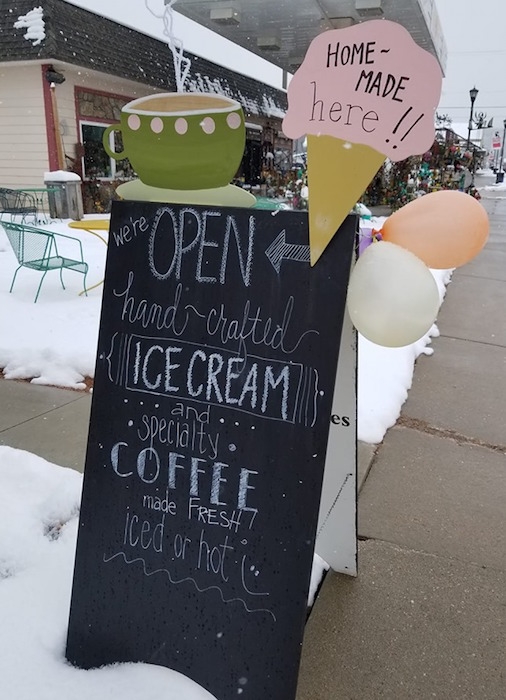 HOME~
MADE
here!!
we're OPEN
hand~crafted
ICE CREAM
and
specialty
COFFEE
made FRESH
iced or hot (:
es